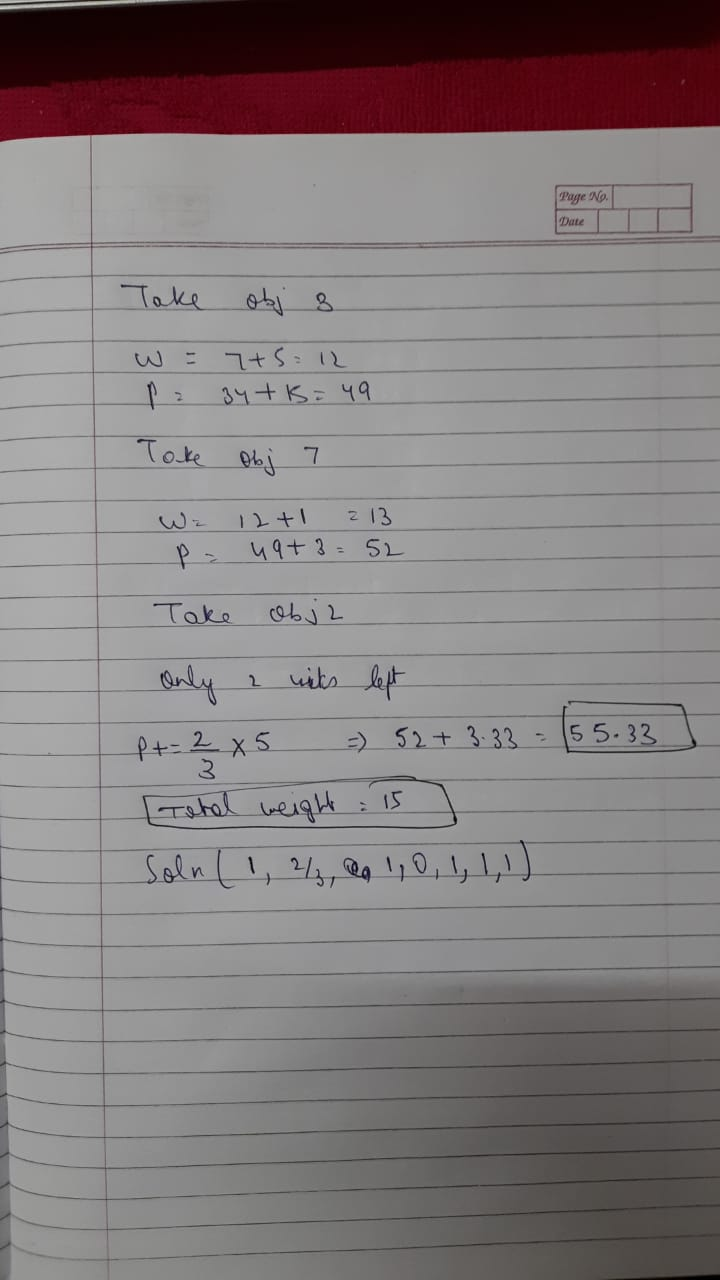 Page No.
Date
Take obj 3
W = 7+5 = 12
P = 34+15 = 49
Take obj 7
W = 12+1 = 13
P = 49+3 = 52
Take obj 2
only 2 units left
P+= 2/3 x 5 => 52 + 3.33 = 55.33
Total weight = 15
Soln ( 1, 2/3, 1, 0, 1, 1, 1 )